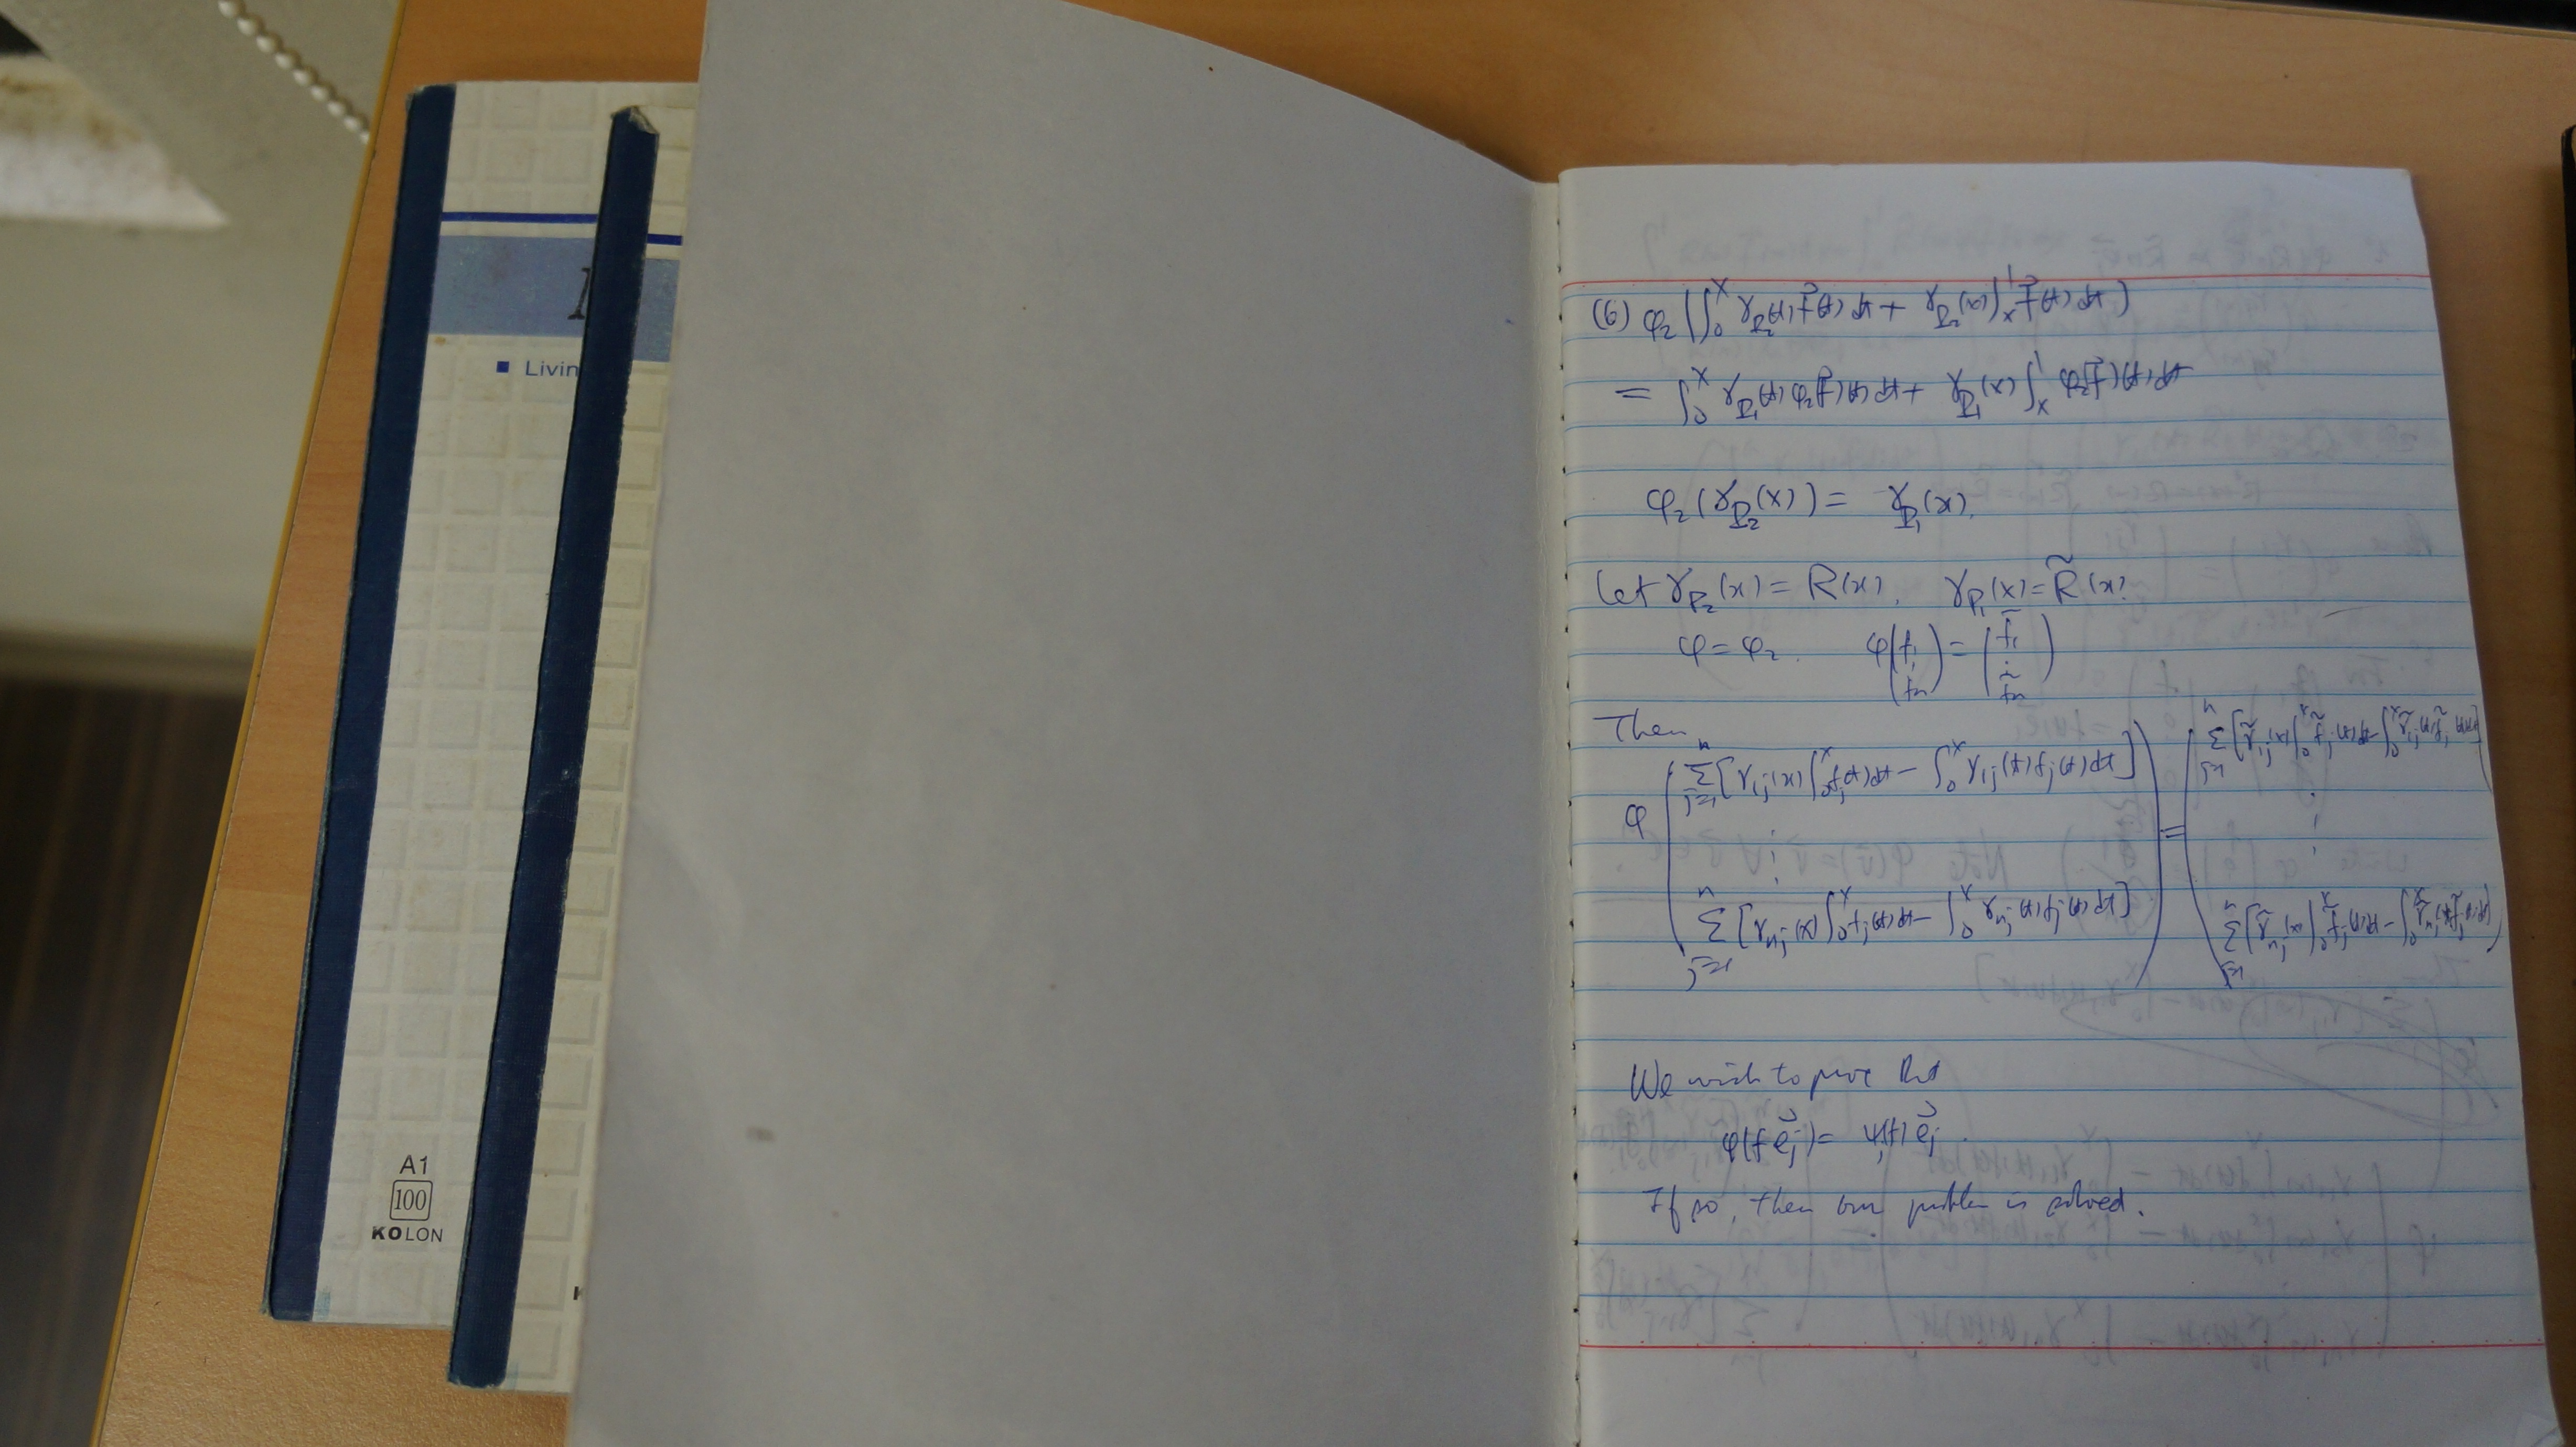 Livin
A1
100
KOLON
(6) φ₂(∫₀ˣ γ_P₂(t) f⃗(t) dt + γ_P₂(x) ∫ₓ¹ f⃗(t) dt)
= ∫₀ˣ γ_P₁(t) φ₂(f⃗)(t) dt + γ_P₁(x) ∫ₓ¹ φ₂(f⃗)(t) dt
φ₂(γ_P₂(x)) = γ_P₁(x).
Let γ_P₂(x) = R(x), γ_P₁(x) = R̃(x).
φ = φ₂. φ(f₁ ⋮ fₙ) = (f̃₁ ⋮ f̃ₙ)
Then
φ ( Σⱼ₌₁ⁿ [γ₁ⱼ(x) ∫₀ˣ fⱼ(t) dt − ∫₀ˣ γ₁ⱼ(t) fⱼ(t) dt] ⋮ Σⱼ₌₁ⁿ [γₙⱼ(x) ∫₀ˣ fⱼ(t) dt − ∫₀ˣ γₙⱼ(t) fⱼ(t) dt] ) = ( Σⱼ₌₁ⁿ [γ̃₁ⱼ(x) ∫₀ˣ f̃ⱼ(t) dt − ∫₀ˣ γ̃₁ⱼ(t) f̃ⱼ(t) dt] ⋮ Σⱼ₌₁ⁿ [γ̃ₙⱼ(x) ∫₀ˣ f̃ⱼ(t) dt − ∫₀ˣ γ̃ₙⱼ(t) f̃ⱼ(t) dt] )
We wish to prove that
φ(f e⃗ⱼ) = ψⱼ(f) e⃗ⱼ.
If so, then our problem is solved.